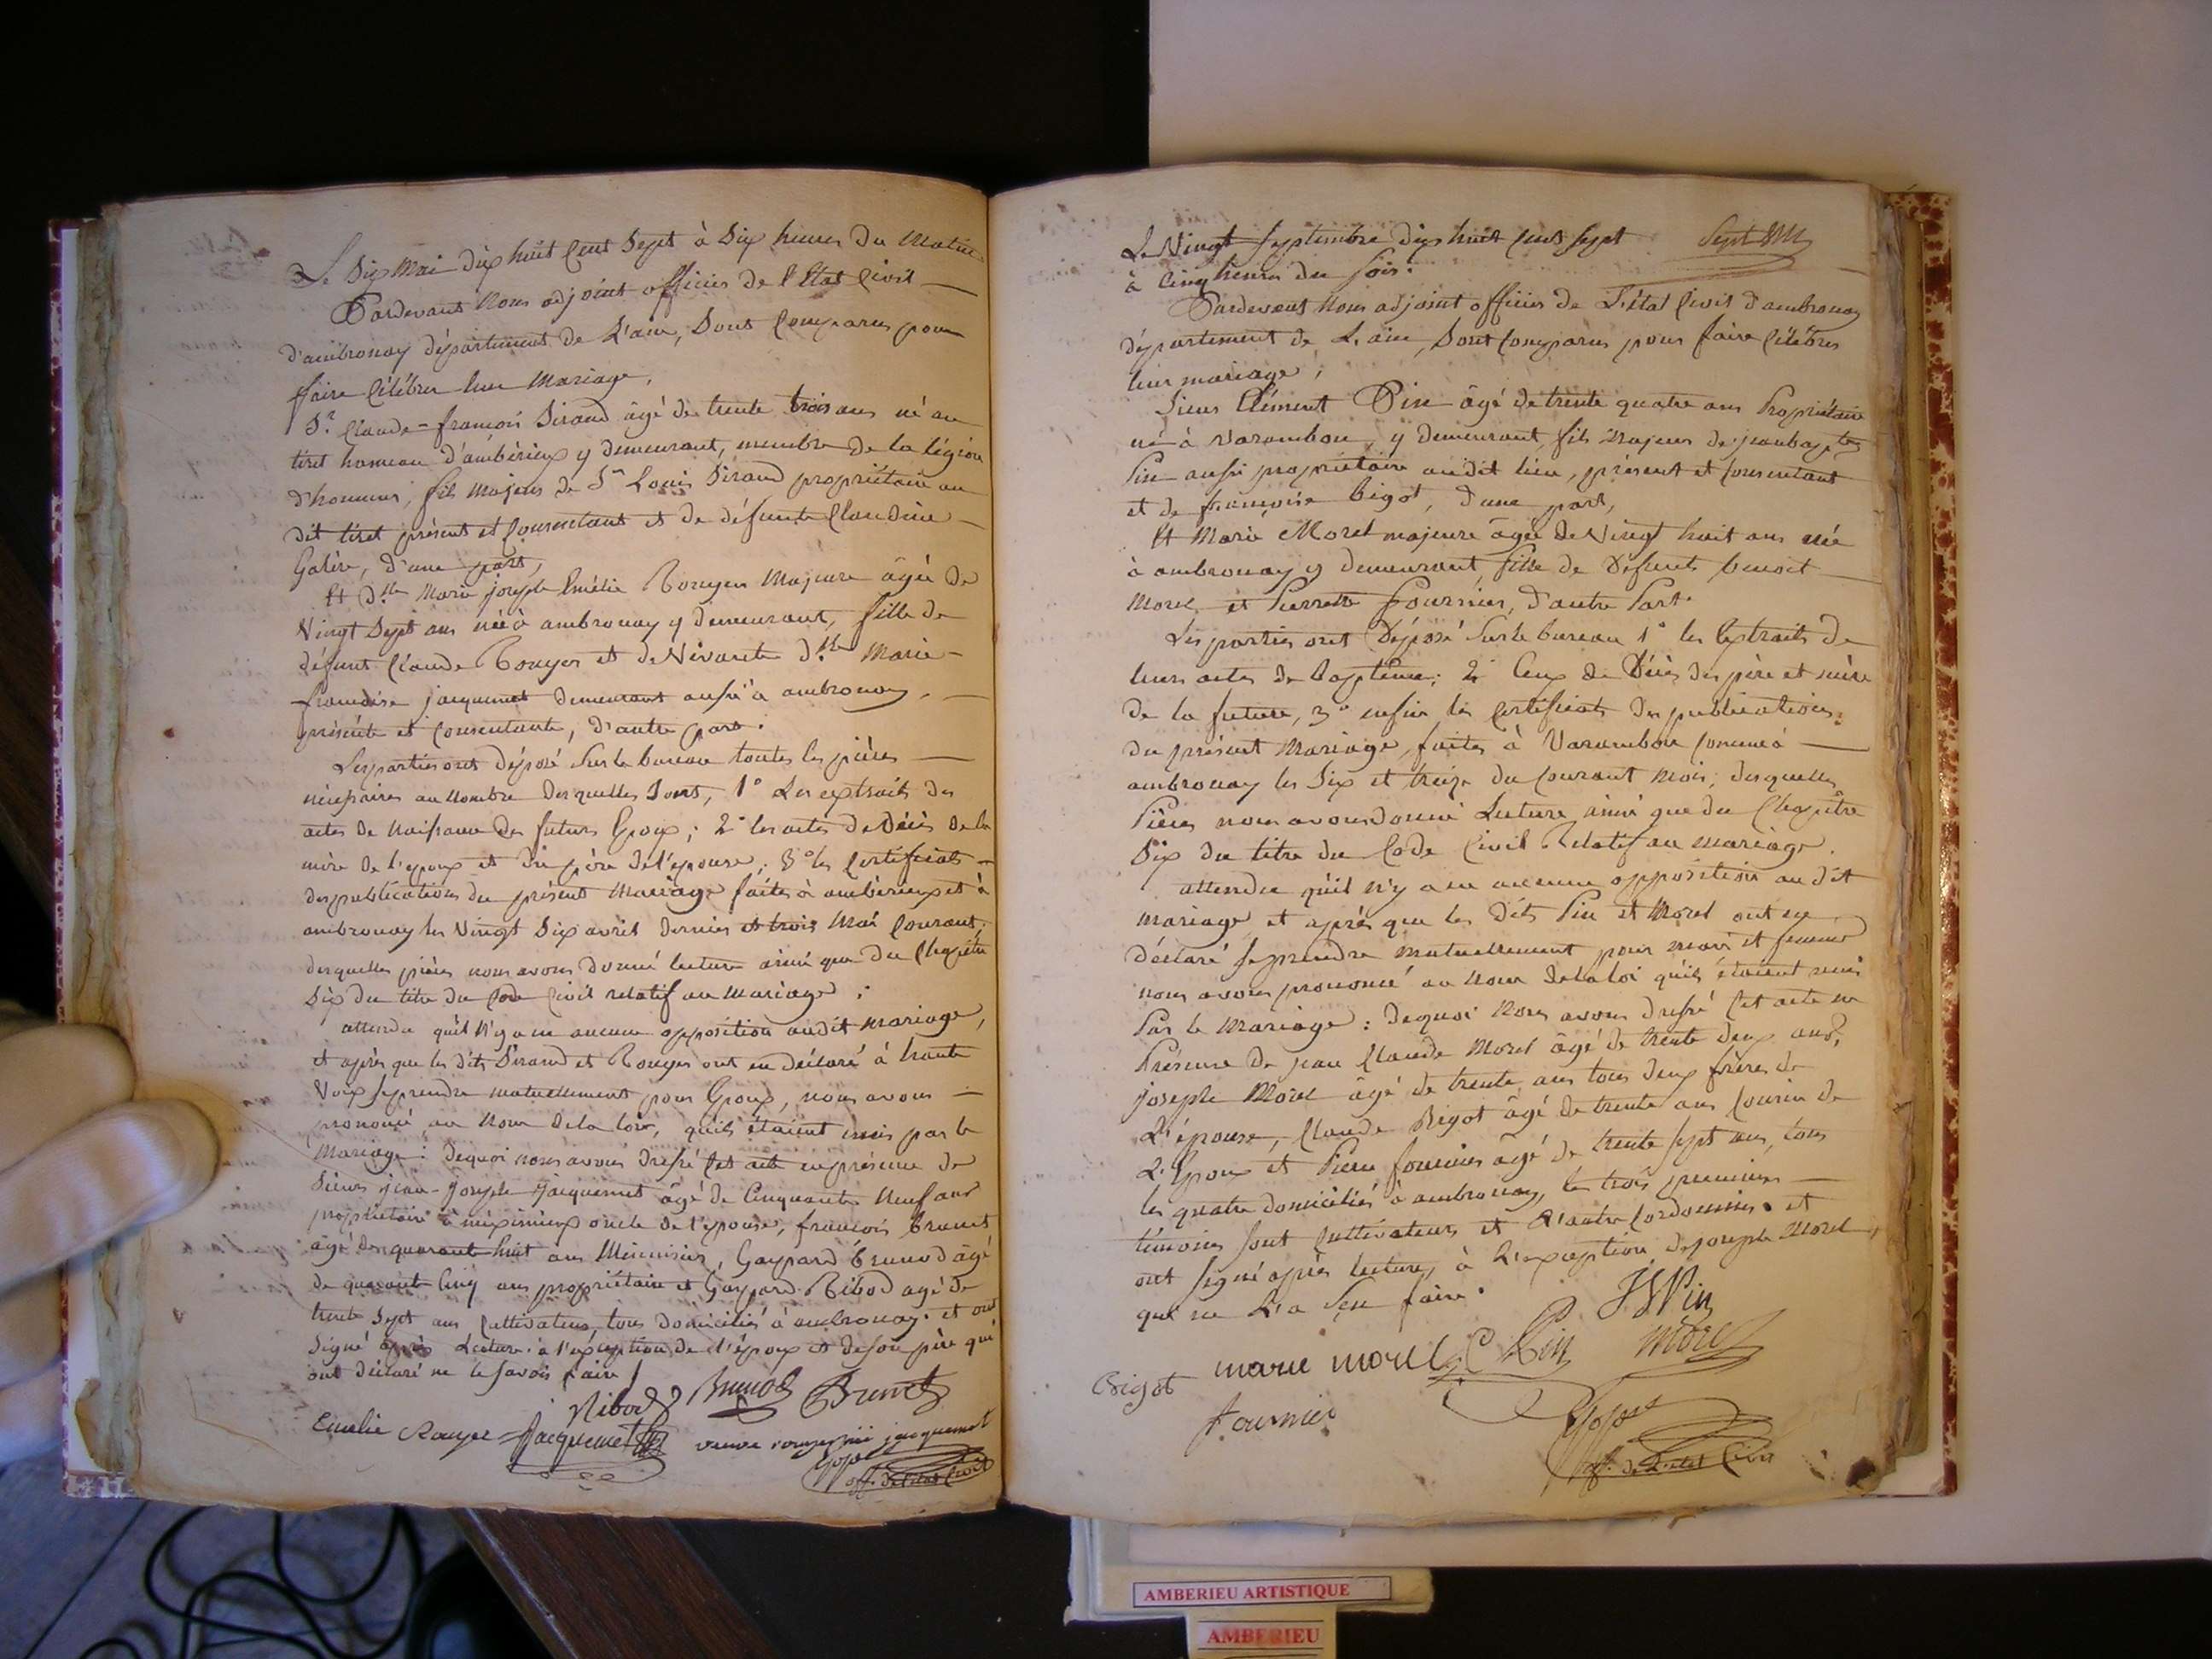 Le Dix Mai dix huit Cent Sept à Dix heures du Matin
Pardevant Nous adjoint officier de l'Etat Civil
d'ambronay département de L'ain, Sont Comparus pour
faire Célébrer leur Mariage,
Sr. Claude-francois Sirand âgé de trente trois ans né au
tiret hameau d'ambérieux y demeurant, membre de la légion
d'honneur, fils Majeur de Sr Louis Sirand propriétaire au
dit tiret présent et Consentant et de défunte Claudine
d'une part,
Et Dlle Marie joseph Emélie Rouyer Majeure âgée de
Vingt Sept ans née à ambronay y demeurant, fille de
défunt Claude Rouyer et de Vivante dlle Marie-
francoise jacquemet demeurant aussi à ambronay,
présente et Consentante, d'autre part.
Les parties ont déposé Sur le bureau toutes les pièces
nécessaires au nombre desquelles Sont, 1° Les extraits des
actes de Naissance des futurs Epoux; 2° les actes de Décès de la
mère de l'epoux et du père de l'epouse; 3° les Certificats
des publications du présent Mariage faites à ambérieux et à
ambronay les Vingt Six avril dernier et trois Mai Courant;
desquelles pièces nous avons donné lecture ainsi que du Chapitre
Six du titre du Code Civil relatif au Mariage;
attendu qu'il N'y a eu aucune opposition audit Mariage,
et après que les dits Sirand et Rouyer ont eu déclaré à haute
Voix se prendre mutuellement pour Epoux, nous avons
prononcé au Nom de la loi, qu'ils étaient unis par le
Mariage: Dequoi nous avons dressé Cet acte en présence de
Sieurs jean-joseph Jacquemet âgé de Cinquante Neuf ans
propriétaire à oncle de l'epouse, francois brunet
âgé de quarante huit ans Menuisier, Gaspard brunod âgé
de quarante Cinq ans propriétaire et Gaspard Ribod âgé de
trente Sept ans Cultivateur, tous domiciliés à ambronay. et ont
Signé après Lecture à l'exception de l'époux et de son père qui
ont déclaré ne le Savoir faire
Ribod Brunod Brunet
Emelie Rouyer Jacquemet veuve rouyer née jacquemet
off. de l'état Civil
Le Vingt Septembre dix huit Cent Sept
à Cinq heures du Soir.
Pardevant Nous adjoint officier de L'état Civil d'ambronay
département de L'ain, Sont Comparus pour faire Célébrer
leur mariage,
Sieur Clément Pin âgé de trente quatre ans Propriétaire
né à Varambon, y demeurant, fils Majeur de jean baptiste
Pin aussi propriétaire audit lieu, présent et Consentant
et de francoise bigot, d'une part,
Et Marie Morel majeure âgée de Vingt huit ans née
à ambronay y demeurant fille de Défunts benoit
Morel et Pierrette Fournier, d'autre Part.
Les parties ont Déposé Sur le bureau 1° les Extraits de
leurs actes de baptême; 2° Ceux de Décès des père et mère
de la future, 3° enfin les Certificats des publications
du présent Mariage, faites à Varambon Comme à
ambronay les Six et treize du Courant Mois; desquelles
Pièces nous avons donné Lecture ainsi que du Chapitre
Six du titre du Code Civil Relatif au mariage.
attendu qu'il N'y a eu aucune opposition au dit
mariage et après que les Dits Pin et Morel ont eu
déclaré se prendre mutuellement pour mari et femme
nous avons prononcé au nom de la loi qu'ils étaient unis
Par le Mariage: Dequoi Nous avons dressé Cet acte en
Présence de jean Claude Morel âgé de trente deux ans,
joseph Morel âgé de trente ans tous deux frères de
L'épouse, Claude Bigot âgé de trente ans Cousin de
L'Epoux et Pierre fournier âgé de trente Sept ans, tous
les quatre domiciliés à ambronay, les trois premiers
témoins Sont Cultivateurs et L'autre Cordonnier. et
ont Signé après lecture, à L'exception de joseph Morel
qui ne L'a Seu faire.
JB Pin
Bigot marie morel C Pin Morel
fournier
off. de L'état Civil
AMBERIEU ARTISTIQUE
AMBERIEU